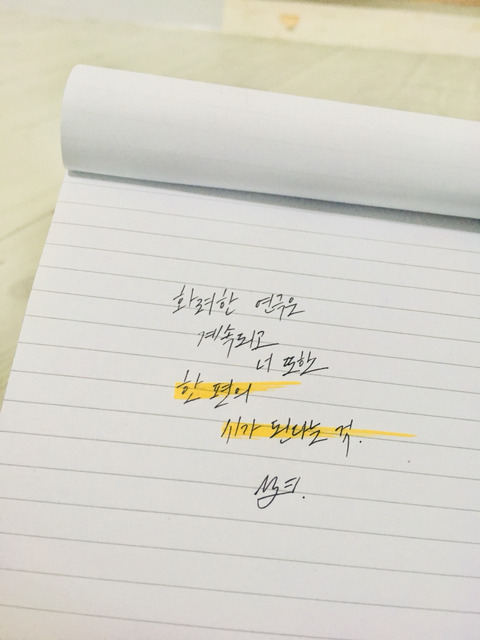 화려한 연극은
계속되고
너 또한
한 편의
시가 된다는 것.